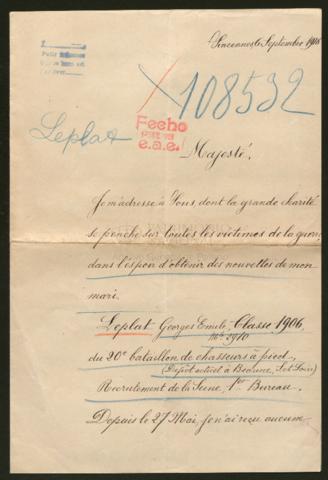 Vincennes 6 September 1918
108532
Leplat
Fecho
e.a.e.
Majesté,
Je m'adresse à Vous dont la grande charité
se penche sur toutes les victimes de la guerre
dans l'espoir d'obtenir des nouvelles de mon
mari.
Leplat Georges Emile, Classe 1906,
Mle 2910
du 20e bataillon de chasseurs à pied,
(Dépôt actuel à Beaune, Lot Loire)
Recrutement de la Seine, 1er Bureau.
Depuis le 27 Mai, je n'ai reçu aucune